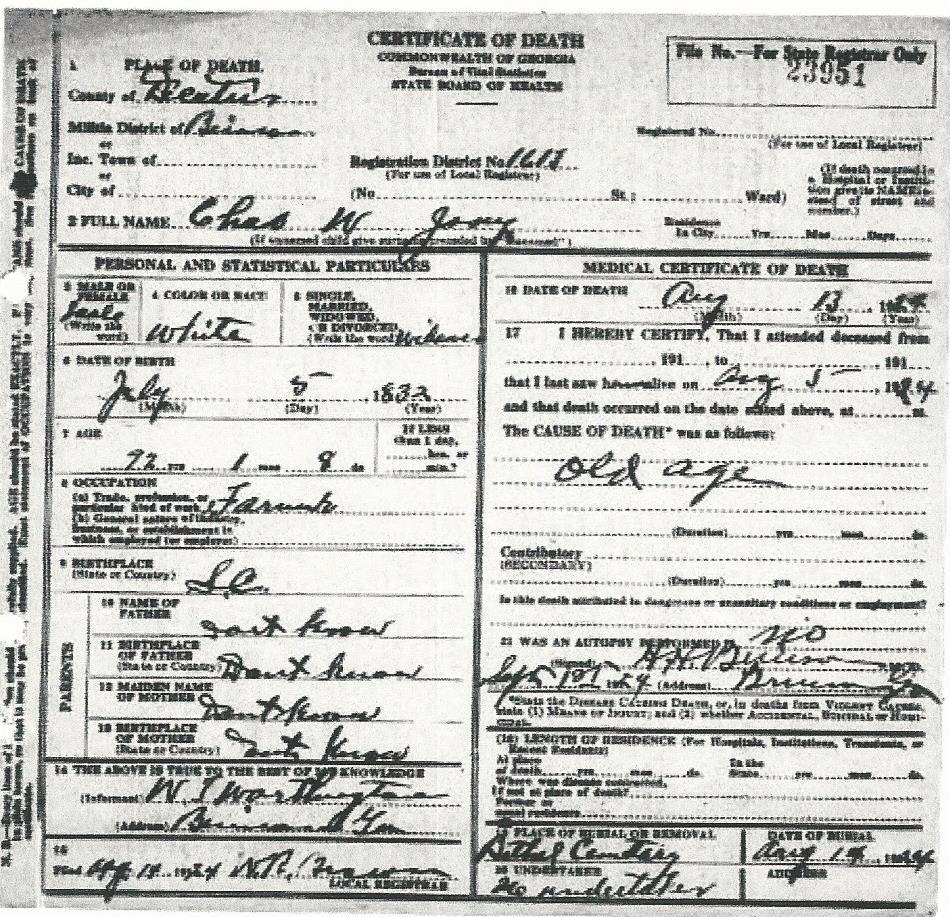 CERTIFICATE OF DEATH
COMMONWEALTH OF GEORGIA
Bureau of Vital Statistics
STATE BOARD OF HEALTH
File No.—For State Registrar Only
23951
1 PLACE OF DEATH.
County of Decatur
Militia District of Brinson
or
Inc. Town of
or
City of
Registration District No. 1611
(For use of Local Registrar)
(No. St.; Ward)
Registered No.
(For use of Local Registrar)
(If death occurred in a Hospital or Institution give its NAME instead of street and number.)
2 FULL NAME Chas W
(If unnamed child give surname preceded by "unnamed")
Residence In City Yrs. Mos. Days
PERSONAL AND STATISTICAL PARTICULARS
3 MALE OR FEMALE male (Write the word)
4 COLOR OR RACE White
5 SINGLE, MARRIED, WIDOWED OR DIVORCED (Write the word)
6 DATE OF BIRTH
July 5, 1832
(Month) (Day) (Year)
7 AGE
92 yrs 1 mos 8 ds
If LESS than 1 day, hrs. or min.?
8 OCCUPATION
(a) Trade, profession, or particular kind of work
(b) General nature of industry, business, or establishment in which employed (or employer)
9 BIRTHPLACE
(State or Country) S.C.
PARENTS
10 NAME OF FATHER dont know
11 BIRTHPLACE OF FATHER (State or Country) Dont know
12 MAIDEN NAME OF MOTHER dont know
13 BIRTHPLACE OF MOTHER (State or Country) dont know
14 THE ABOVE IS TRUE TO THE BEST OF MY KNOWLEDGE
(Informant) Worthington
(Address) Brinson Ga
15
Filed 1924
LOCAL REGISTRAR
MEDICAL CERTIFICATE OF DEATH
16 DATE OF DEATH Aug 13 1924
(Month) (Day) (Year)
17 I HEREBY CERTIFY, That I attended deceased from
191 to 191
that I last saw h alive on Aug 5 1924
and that death occurred on the date stated above, at m.
The CAUSE OF DEATH* was as follows:
old age
(Duration) yrs mos ds.
Contributory
(SECONDARY)
(Duration) yrs mos ds.
Is this death attributed to dangerous or unsanitary conditions or employment?
WAS AN AUTOPSY PERFORMED? no
(Signed)
1924 (Address)
*State the DISEASE CAUSING DEATH, or, in deaths from VIOLENT CAUSES, state (1) MEANS OF INJURY; and (2) whether ACCIDENTAL, SUICIDAL or HOMICIDAL.
(18) LENGTH OF RESIDENCE (For Hospitals, Institutions, Transients, or Recent Residents)
At place of death yrs mos ds.
In the State yrs mos ds.
Where was disease contracted,
If not at place of death?
Former or usual residence
19 PLACE OF BURIAL OR REMOVAL
Bethel Cemetery
DATE OF BURIAL
Aug 14 1924
20 UNDERTAKER
No undertaker
ADDRESS